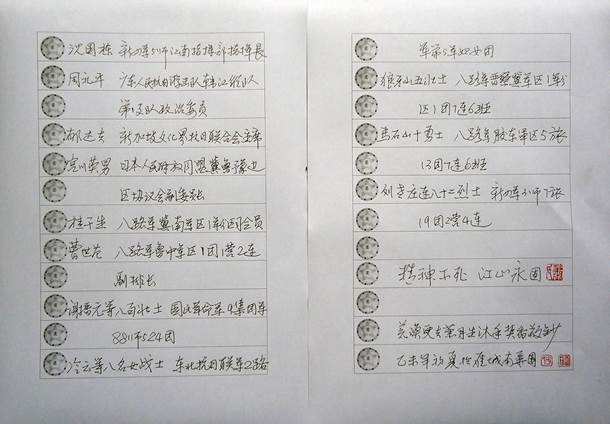 沈国栋 新四军5师江南指挥部指挥长
周礼平 广东人民抗日游击队韩江纵队
第1支队政治委员
郁达夫 新加坡文化界抗日联合会主席
宫川英男 日本人民解放同盟冀鲁豫边
区协议会副委员长
八路军冀南军区1军分区
曹世范 八路军鲁中军区1团1营2连
副排长
谢搢元等八百壮士 国民革命军9集团军
88师524团
冷云等八名女战士 东北抗日联军2路
军第5军妇女团
狼牙山五壮士 八路军晋察冀军区1军分
区1团7连6班
马石山十勇士 八路军胶东军区5旅
13团7连6班
刘老庄连八十二烈士 新四军3师7旅
19团2营4连
精神不死 江山永固
沐手
乙未年